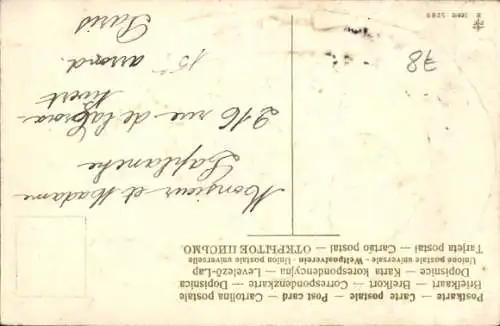 Postkarte — Carte postale — Post card — Cartolina postale
Briefkaart — Brefkort — Correspondenzkarte — Dopisnica
Dopisnice — Karta korespondencyjna — Levelező-Lap
Union postale universelle - Weltpostverein - Unione postale universale
Tarjeta postal — Cartão postal — ОТКРЫТОЕ ПИСЬМО.
Monsieur et Madame
Laplanche
216 rue de la Croix-
Nivert
15e arrond.
Paris
78